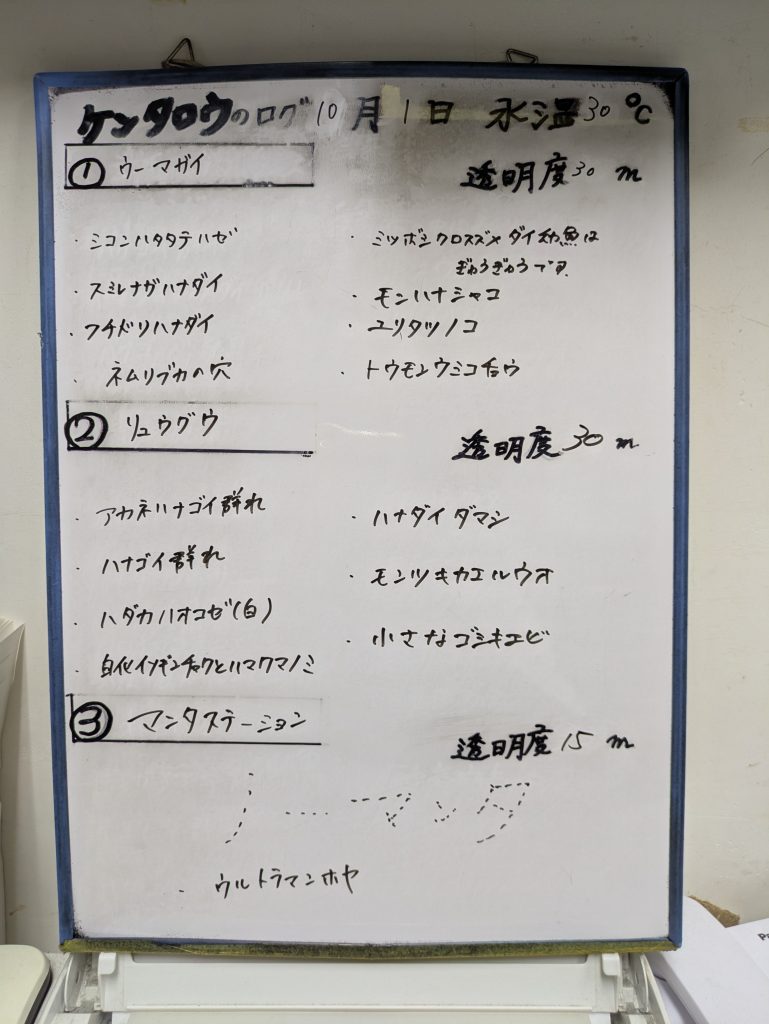 ケンタロウのログ 10月1日 水温30℃
① ウーマガイ
透明度30m
・シコンハタタテハゼ
・スミレナガハナダイ
・フチドリハナダイ
・ネムリブカの穴
・ミツボシクロスズメダイ幼魚は
ぎゅうぎゅうです
・モンハナシャコ
・ユリタツノコ
・トウモンウミコチョウ
② リュウグウ
透明度30m
・アカネハナゴイ群れ
・ハナゴイ群れ
・ハダカハオコゼ(白)
・白化イソギンチャクとハマクマノミ
・ハナダイダマシ
・モンツキカエルウオ
・小さなゴシキエビ
③ マンタステーション
透明度15m
ノーマンタ
・ウルトラマンホヤ